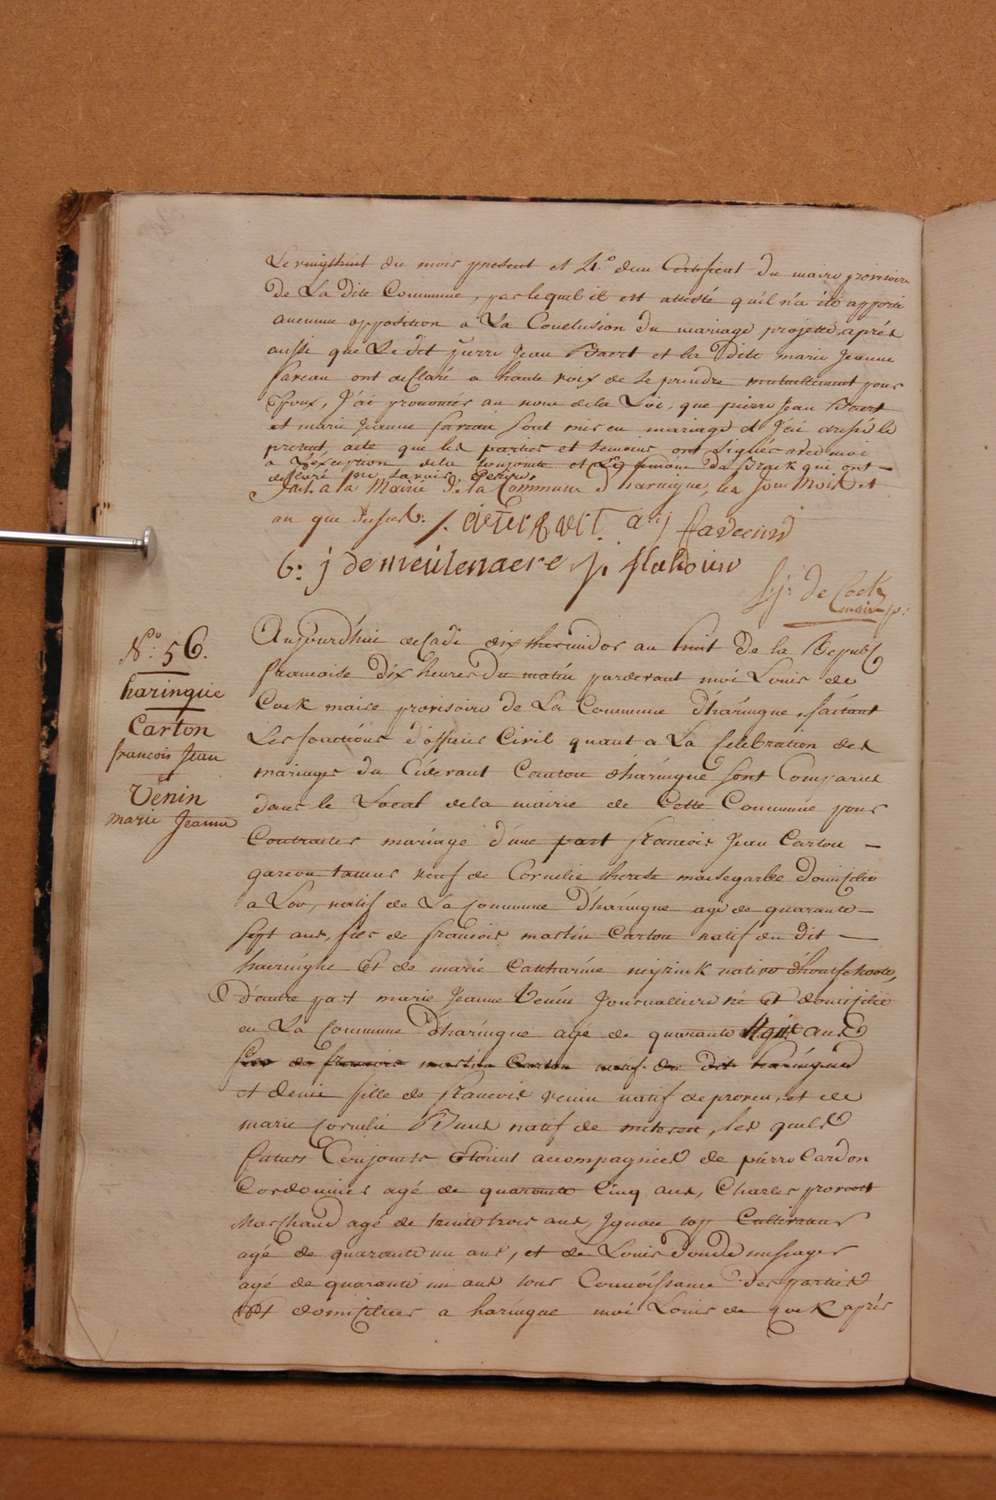 Le vingthuit du mois present et 4.° d'un Certificat du maire provisoire
de La dite Commune, par lequel il est attesté qu'il n'a été apporté
aucunne opposition a La Conclusion du mariage projetté, aprés
aussi que Le dit pierre Jean Baert et la Dite marie Jeanne
fareau ont declaré a haute voix de se prendre mutuellement pour
Epoux, J'ai prononcé au nom de la Loi, que pierre Jean Baert
et marie Jeanne fareau sont unis en mariage et J'ai dressé le
present, acte que les parties et temoins ont signés avec moi
a L'exception de la conjointe et qui ont
declaré ne savoir Ecrire.
fait a la Mairie de la Commune d'haringue, les Jour Mois et
an que dessus.
6: j demeulenaere
L: j: de Cock
maire p:
N.° 56.
haringue
Carton
francois Jean
Venin
marie Jeanne
Aujourd'hui decadi dix thermidor an huit de la Republ
francaise dix heures du matin pardevant moi Louis de
Cock maire provisoire de La Commune d'haringue, faisant
Les fonctions d'officier Civil quant a La Celebration des
mariages du Ci devant Canton d'haringue sont Comparus
dans le Local de la mairie de Cette Commune pour
Contracter mariage d'une part francois Jean Carton —
garcon tanneur veuf de Cornelie therese domicilié
a Loo, natif de La Commune D'haringue agé de quarante —
sept ans, fils de francois martin Carton natif du dit —
haeringhe Et de marie Catharine native d'hontschoote,
D'autre part marie Jeanne Venin Journalliere né et domicilié
en La Commune D'haringue agé de quarante ans
fils de francois martin Carton natif du dit haringue
et demie fille de francois venin natif de proven, et de
marie Cornelie natif de les quels
futurs Conjoints Etoient accompagnies de pierre Cardon
Cordonnier agé de quarante Cinq ans, Charles provoost
Marchand agé de trente trois ans, Ignace top Cultivateur
agé de quarante un ans, et de Louis Donde messager
agé de quarante un ans tous Connoissance des parties
Et domiciliés a haringue moi Louis de Cock aprés